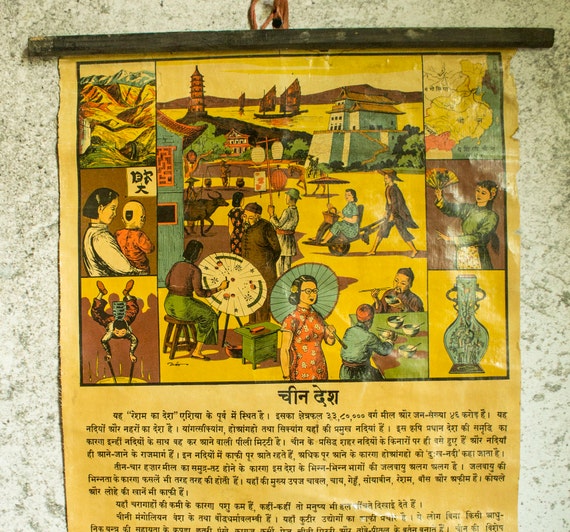 चीन देश
यह "रेशम का देश" एशिया के पूर्व में स्थित है। इसका क्षेत्रफल ३३,८०,००० वर्ग मील और जन-संख्या ४६ करोड़ है। यह
नदियों और नहरों का देश है। यांगत्सीक्यांग, होआंगहो तथा सिक्यांग यहाँ की प्रमुख नदियां हैं। इस कृषि प्रधान देश की समृद्धि का
कारण इन्हीं नदियों के साथ बह कर आने वाली पीली मिट्टी है। चीन के प्रसिद्ध शहर नदियों के किनारों पर ही बसे हुए हैं और नदियां
ही आने-जाने के राजमार्ग हैं। इन नदियों में काफी पूर आते रहते हैं, अधिक पूर आने के कारण होआंगहो को 'दुःख-नदी' कहा जाता है।
तीन-चार हजार मील का समुद्र-तट होने के कारण इस देश के भिन्न-भिन्न भागों की जलवायु अलग अलग है। जलवायु की
भिन्नता के कारण फसलें भी तरह तरह की होती हैं। यहाँ की मुख्य उपज चावल, चाय, गेहूँ, सोयाबीन, रेशम, बाँस और अफीम हैं। कोयले
और लोहे की खानें भी काफी हैं।
यहाँ चरागाहों की कमी के कारण पशु कम हैं, कहीं-कहीं तो मनुष्य भी हल खींचते दिखाई देते हैं।
चीनी मंगोलियन वंश के तथा बौद्धधर्मावलम्बी हैं। यहाँ कुटीर उद्योगों का काफी प्रचार है। ये लोग बिना किसी आधु-
निक यन्त्र की सहायता के